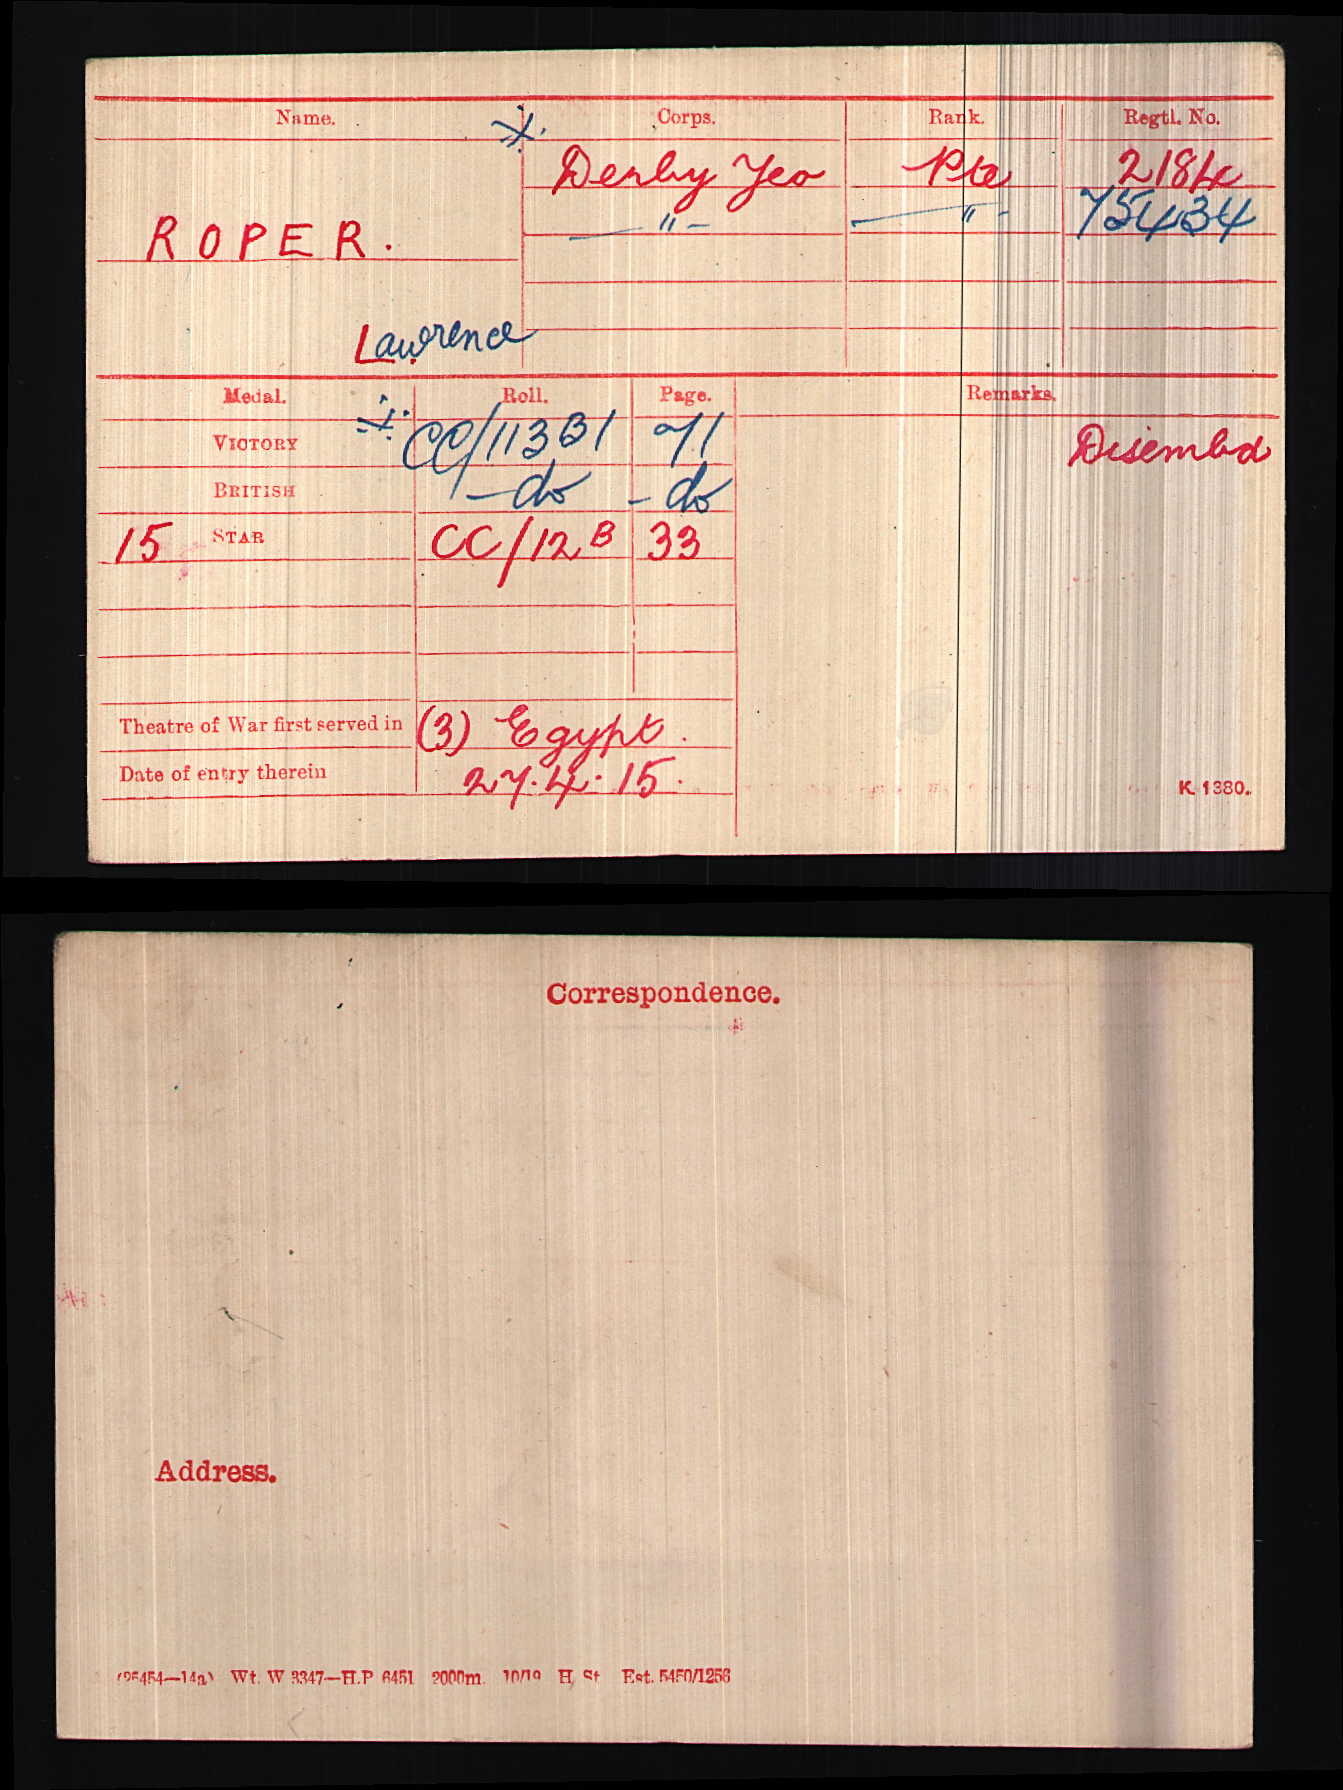 Name. Corps. Rank. Regtl. No.
Derby Yeo Pte 2184
ROPER. —"— —"— 75434
Lawrence
Medal. Roll. Page. Remarks.
VICTORY CC/113B1 71 Disembd
BRITISH —do —do
15 STAR CC/12B 33
Theatre of War first served in (3) Egypt.
Date of entry therein 27.4.15.
K. 1380.
Correspondence.
Address.
(25454—14a) Wt. W 3347—H.P 6451 2000m. 10/19 H, St Est. 5450/1256